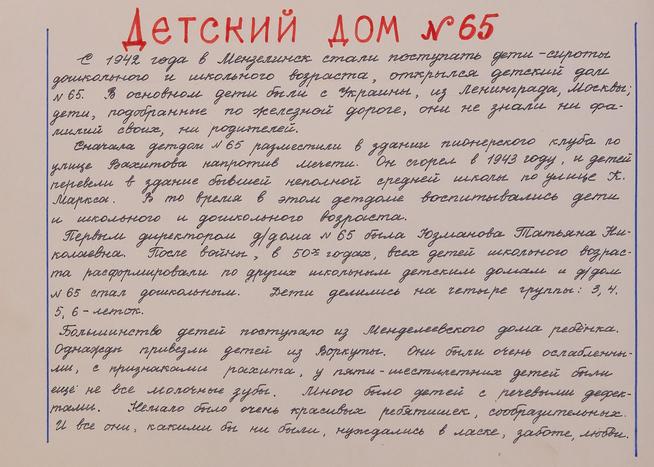 Детский дом №65
С 1942 года в Мензелинск стали поступать дети-сироты
дошкольного и школьного возраста, открылся детский дом
№65. В основном дети были с Украины, из Ленинграда, Москвы;
дети, подобранные по железной дороге, они не знали ни фа-
милий своих, ни родителей.
Сначала детдом №65 разместили в здании пионерского клуба по
улице Вахитова напротив мечети. Он сгорел в 1943 году, и детей
перевели в здание бывшей неполной средней школы по улице К.
Маркса. В то время в этом детдоме воспитывались дети
и школьного и дошкольного возраста.
Первым директором д/дома №65 была Юзманова Татьяна Ни-
колаевна. После войны, в 50х годах, всех детей школьного возрас-
та расформировали по других школьным детским домам и д/дом
№65 стал дошкольным. Дети делились на четыре группы: 3, 4,
5, 6-леток.
Большинство детей поступало из Менделеевского дома ребёнка.
Однажды привезли детей из Воркуты. Они были очень ослабленны-
ми, с признаками рахита, у пяти-шестилетних детей были
ещё не все молочные зубы. Много было детей с речевыми дефек-
тами. Немало было очень красивых ребятишек, сообразительных.
И все они, какими бы ни были, нуждались в ласке, заботе, любви.